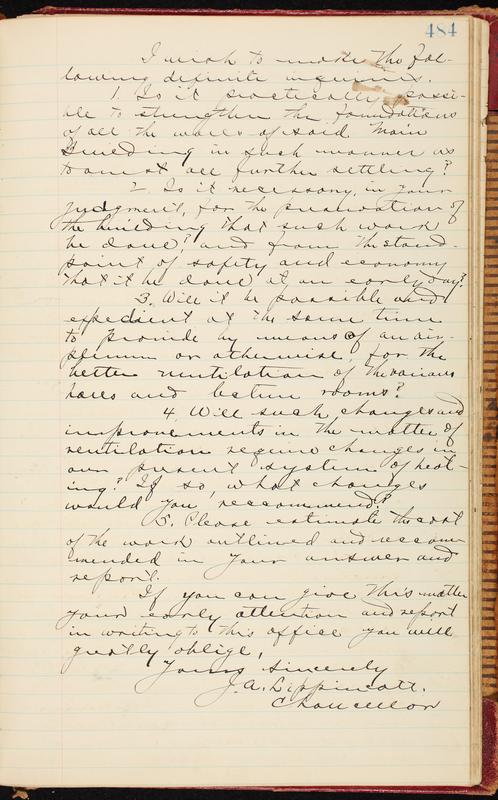 484
I wish to make the fol-
lowing definite inquiries.
1. Is it practically possi-
ble to strengthen the foundations
of all the walls of said Main
Building in such manner as
to arrest all further settling?
2. Is it necessary, in your
judgment, for the preservation of
the building that such work
be done? and from the stand-
point of safety and economy
that it be done at an early day?
3. Will it be possible and
expedient at the same time
to provide by means of an air-
plenum or otherwise, for the
better ventilation of the various
halls and lecture rooms?
4 Will such changes and
improvements in the matter of
ventilation require changes in
our present system of heat-
ing? If so, what changes
would you reccommend?
5. Please estimate the cost
of the work outlined and reccom
mended in your answer and
report.
If you can give this matter
your early attention and report
in writing to this office you will
greatly oblige,
Yours sincerely
J. A. Lippincott.
Chancellor